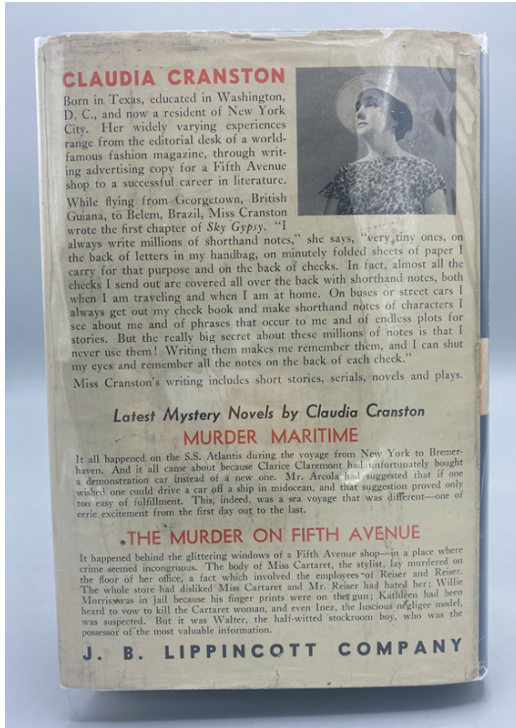 CLAUDIA CRANSTON
Born in Texas, educated in Washington,
D. C., and now a resident of New York
City. Her widely varying experiences
range from the editorial desk of a world-
famous fashion magazine, through writ-
ing advertising copy for a Fifth Avenue
shop to a successful career in literature.
While flying from Georgetown, British
Guiana, to Belem, Brazil, Miss Cranston
wrote the first chapter of Sky Gypsy. "I
always write millions of shorthand notes," she says, "very tiny ones, on
the back of letters in my handbag, on minutely folded sheets of paper I
carry for that purpose and on the back of checks. In fact, almost all the
checks I send out are covered all over the back with shorthand notes, both
when I am traveling and when I am at home. On buses or street cars I
always get out my check book and make shorthand notes of characters I
see about me and of phrases that occur to me and of endless plots for
stories. But the really big secret about these millions of notes is that I
never use them! Writing them makes me remember them, and I can shut
my eyes and remember all the notes on the back of each check."
Miss Cranston's writing includes short stories, serials, novels and plays.
Latest Mystery Novels by Claudia Cranston
MURDER MARITIME
It all happened on the S.S. Atlantis during the voyage from New York to Bremer-
haven. And it all came about because Clarice Claremont had unfortunately bought
a demonstration car instead of a new one. Mr. Arcola had suggested that if one
wished one could drive a car off a ship in midocean, and that suggestion proved only
too easy of fulfillment. This, indeed, was a sea voyage that was different—one of
eerie excitement from the first day out to the last.
THE MURDER ON FIFTH AVENUE
It happened behind the glittering windows of a Fifth Avenue shop—in a place where
crime seemed incongruous. The body of Miss Cartaret, the stylist, lay murdered on
the floor of her office, a fact which involved the employees of Reiser and Reiser.
The whole store had disliked Miss Cartaret and Mr. Reiser had hated her; Willie
Morris was in jail because his finger prints were on the gun; Kathleen had been
heard to vow to kill the Cartaret woman, and even Inez, the luscious négligee model,
was suspected. But it was Walter, the half-witted stockroom boy, who was the
possessor of the most valuable information.
J. B. LIPPINCOTT COMPANY